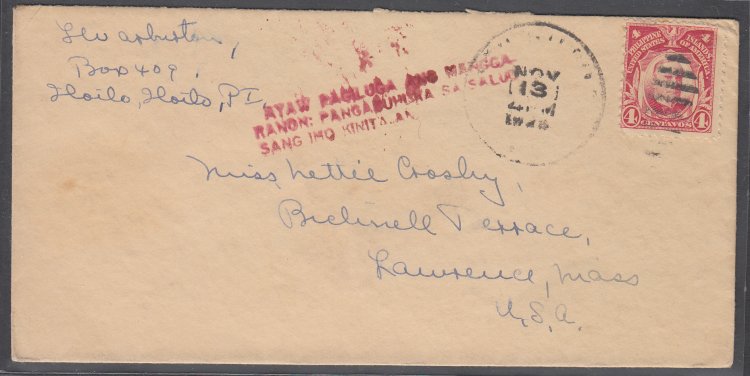 Box 409,
Iloilo, Iloilo, P.I.
AYAW PAGLUGA ANG MANGGA-
RANON: PANGABUHUKA SA SALUP
SANG IMO KINITAAN
NOV
13
4 PM
4 PHILIPPINE ISLANDS 4
UNITED STATES OF AMERICA
4 CENTAVOS 4
Miss Nettie Crosby,
Terrace,
Lawrence, Mass
U.S.A.